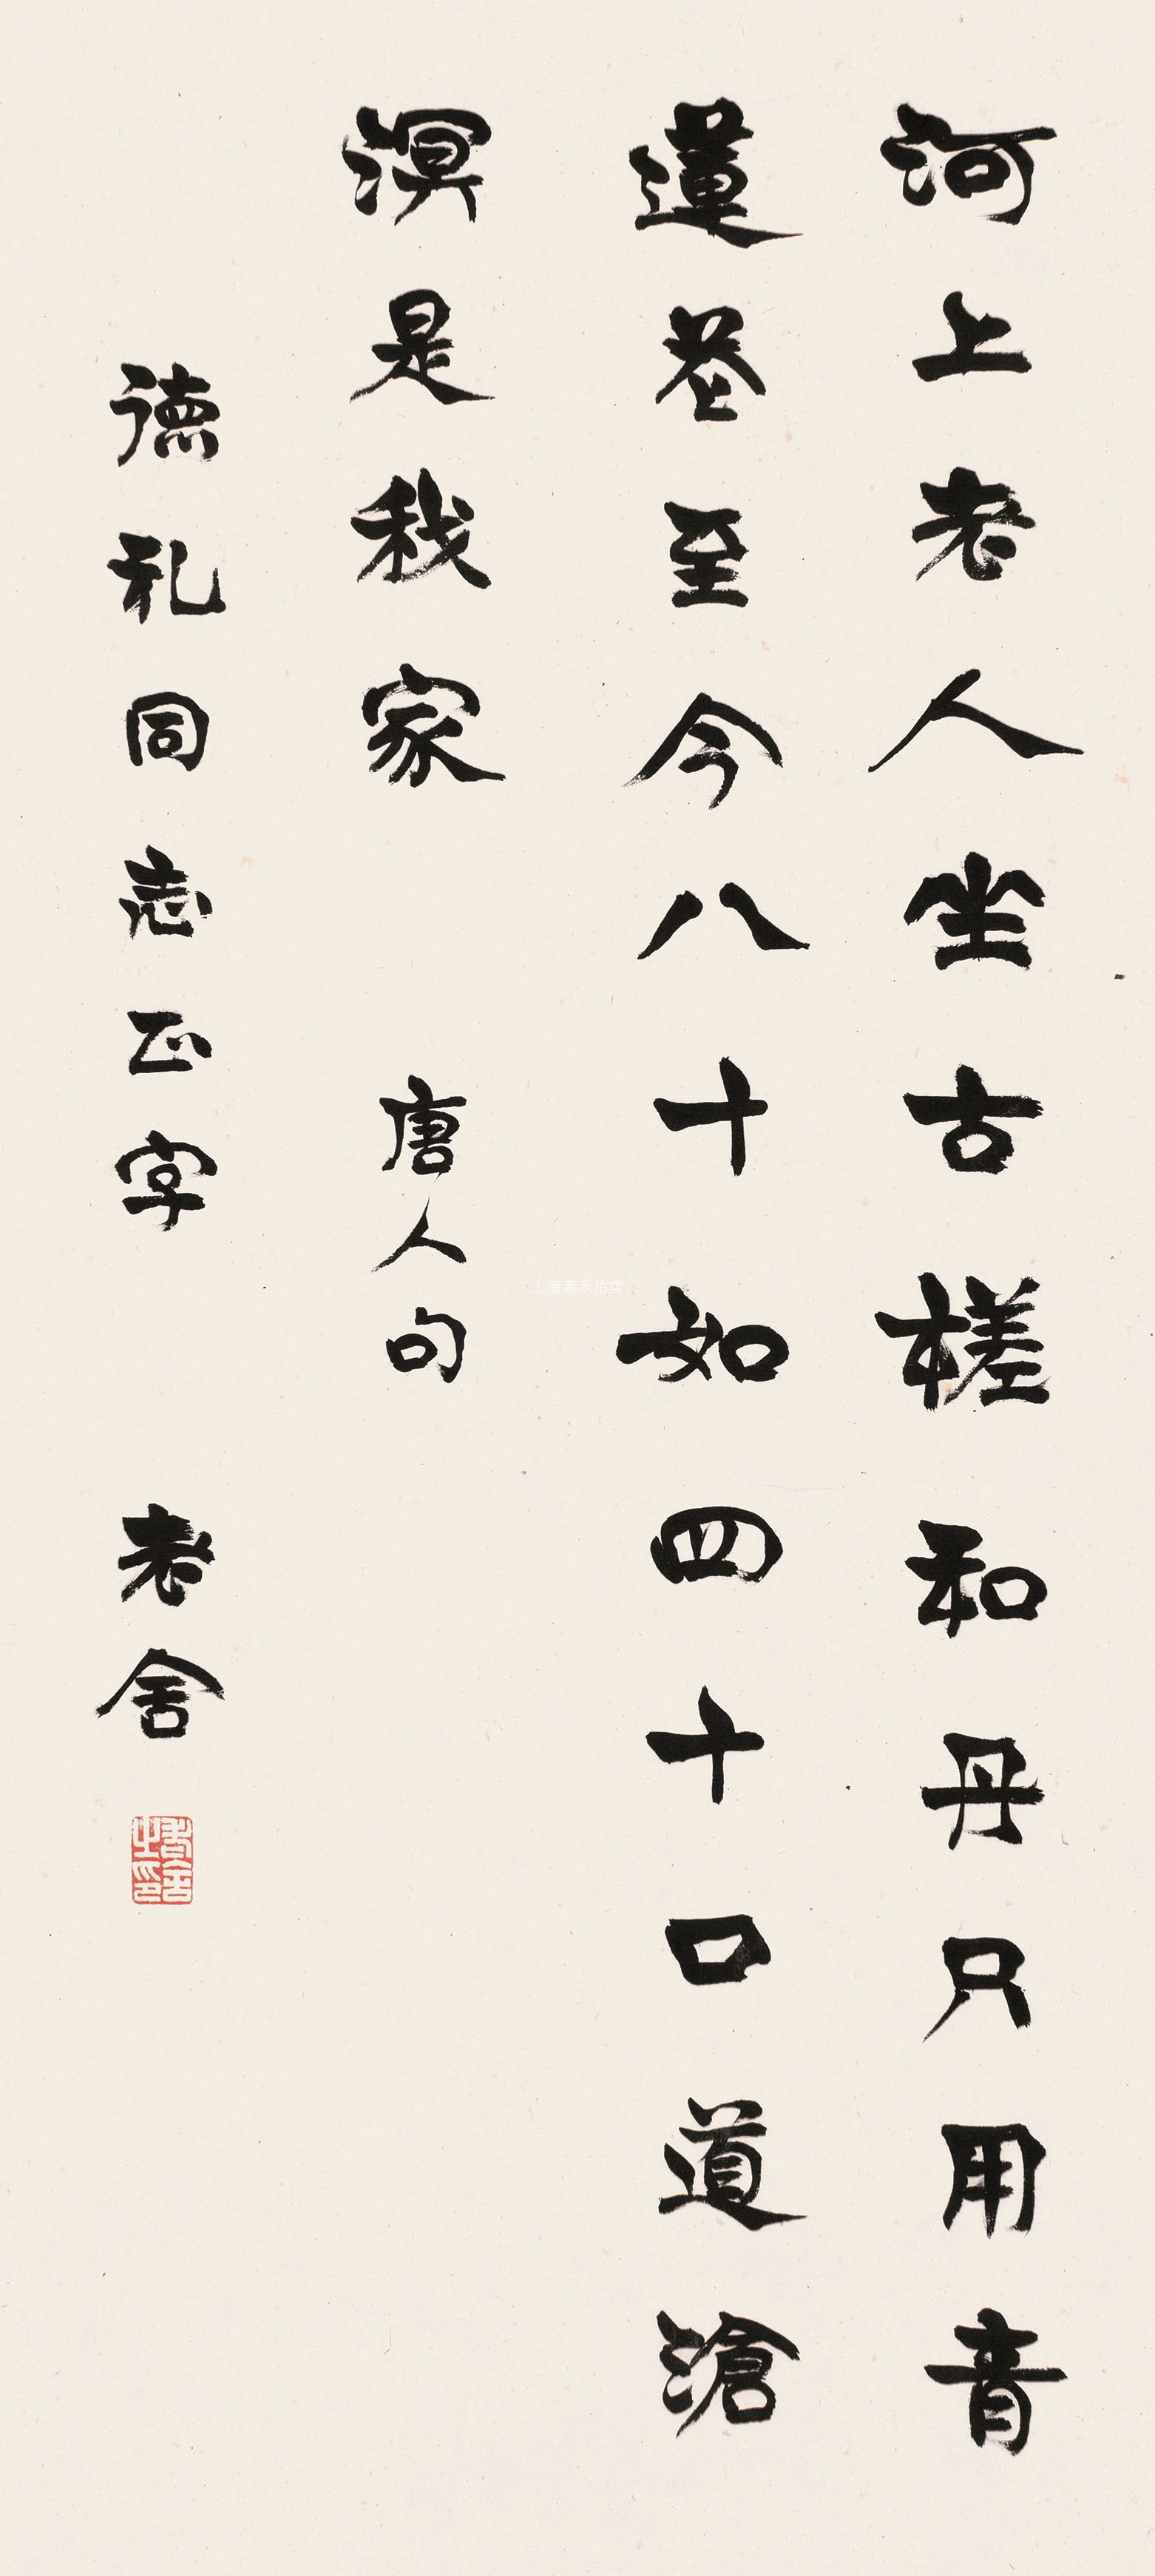 河上老人坐古槎和丹只用青
蓮花至今八十如四十口道滄
溟是我家 唐人句
德礼同志正字 老舍
老舍之印
上海嘉禾拍卖